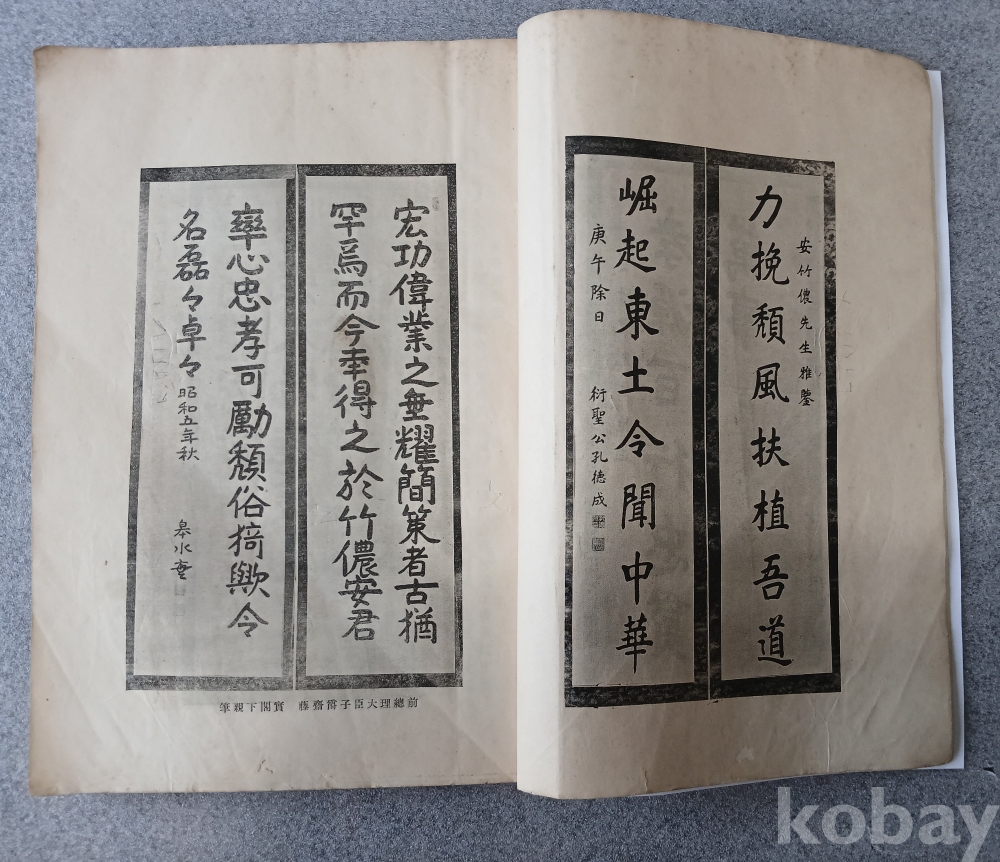 安竹儂先生雅鑒
力挽頹風扶植吾道
崛起東土令聞中華
庚午除日 衍聖公孔德成
宏功偉業之垂耀簡策者古猶
罕焉而今幸得之於竹儂安君
率心忠孝可勵頹俗猗歟令
名磊々卓々昭和五年秋
皋水
前總理大臣子爵齋藤 實閣下親筆
kobay